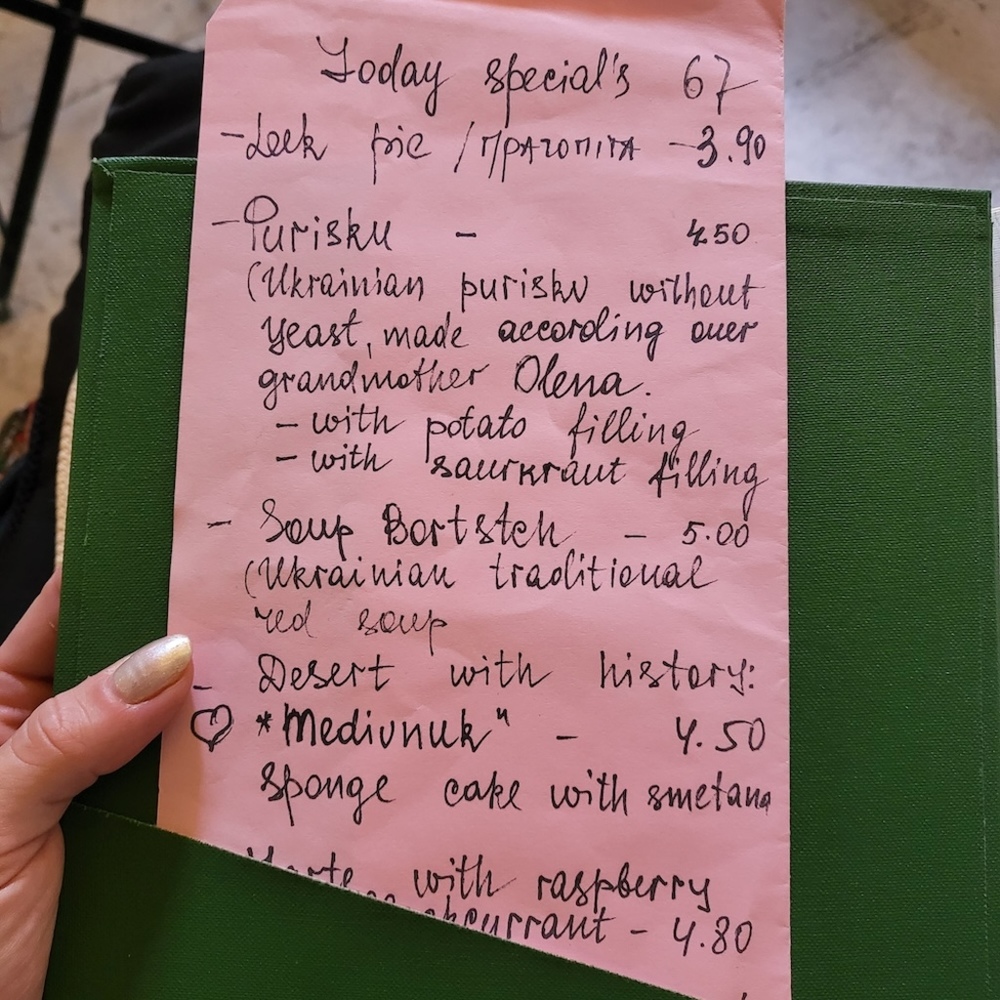 Today special's 67
- Leek pie / ΠΡΑΓΟΠΙΤΑ - 3.90
- Purisku - 4.50
(Ukrainian purisku without
yeast, made according over
grandmother Olena.
- with potato filling
- with saurkraut filling
- Soup Bortstch - 5.00
(Ukrainian traditional
red soup
- Desert with history:
♡ *"Medivnuk" - 4.50
sponge cake with smetana
with raspberry
- 4.80